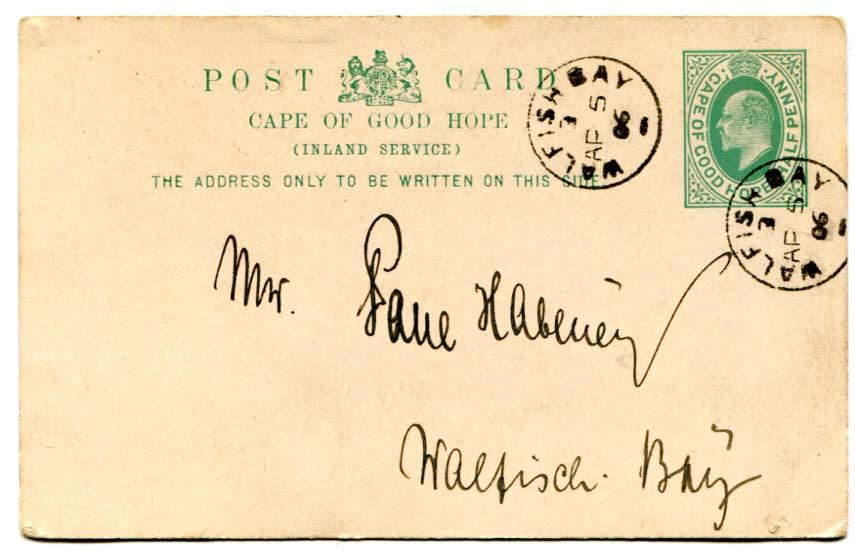 POST CARD
CAPE OF GOOD HOPE
(INLAND SERVICE)
THE ADDRESS ONLY TO BE WRITTEN ON THIS SIDE.
CAPE OF GOOD HOPE HALF PENNY
WALFISH BAY
3
AP 5
06
WALFISH BAY
3
AP 5
06
Mr.
Walfisch. Bay